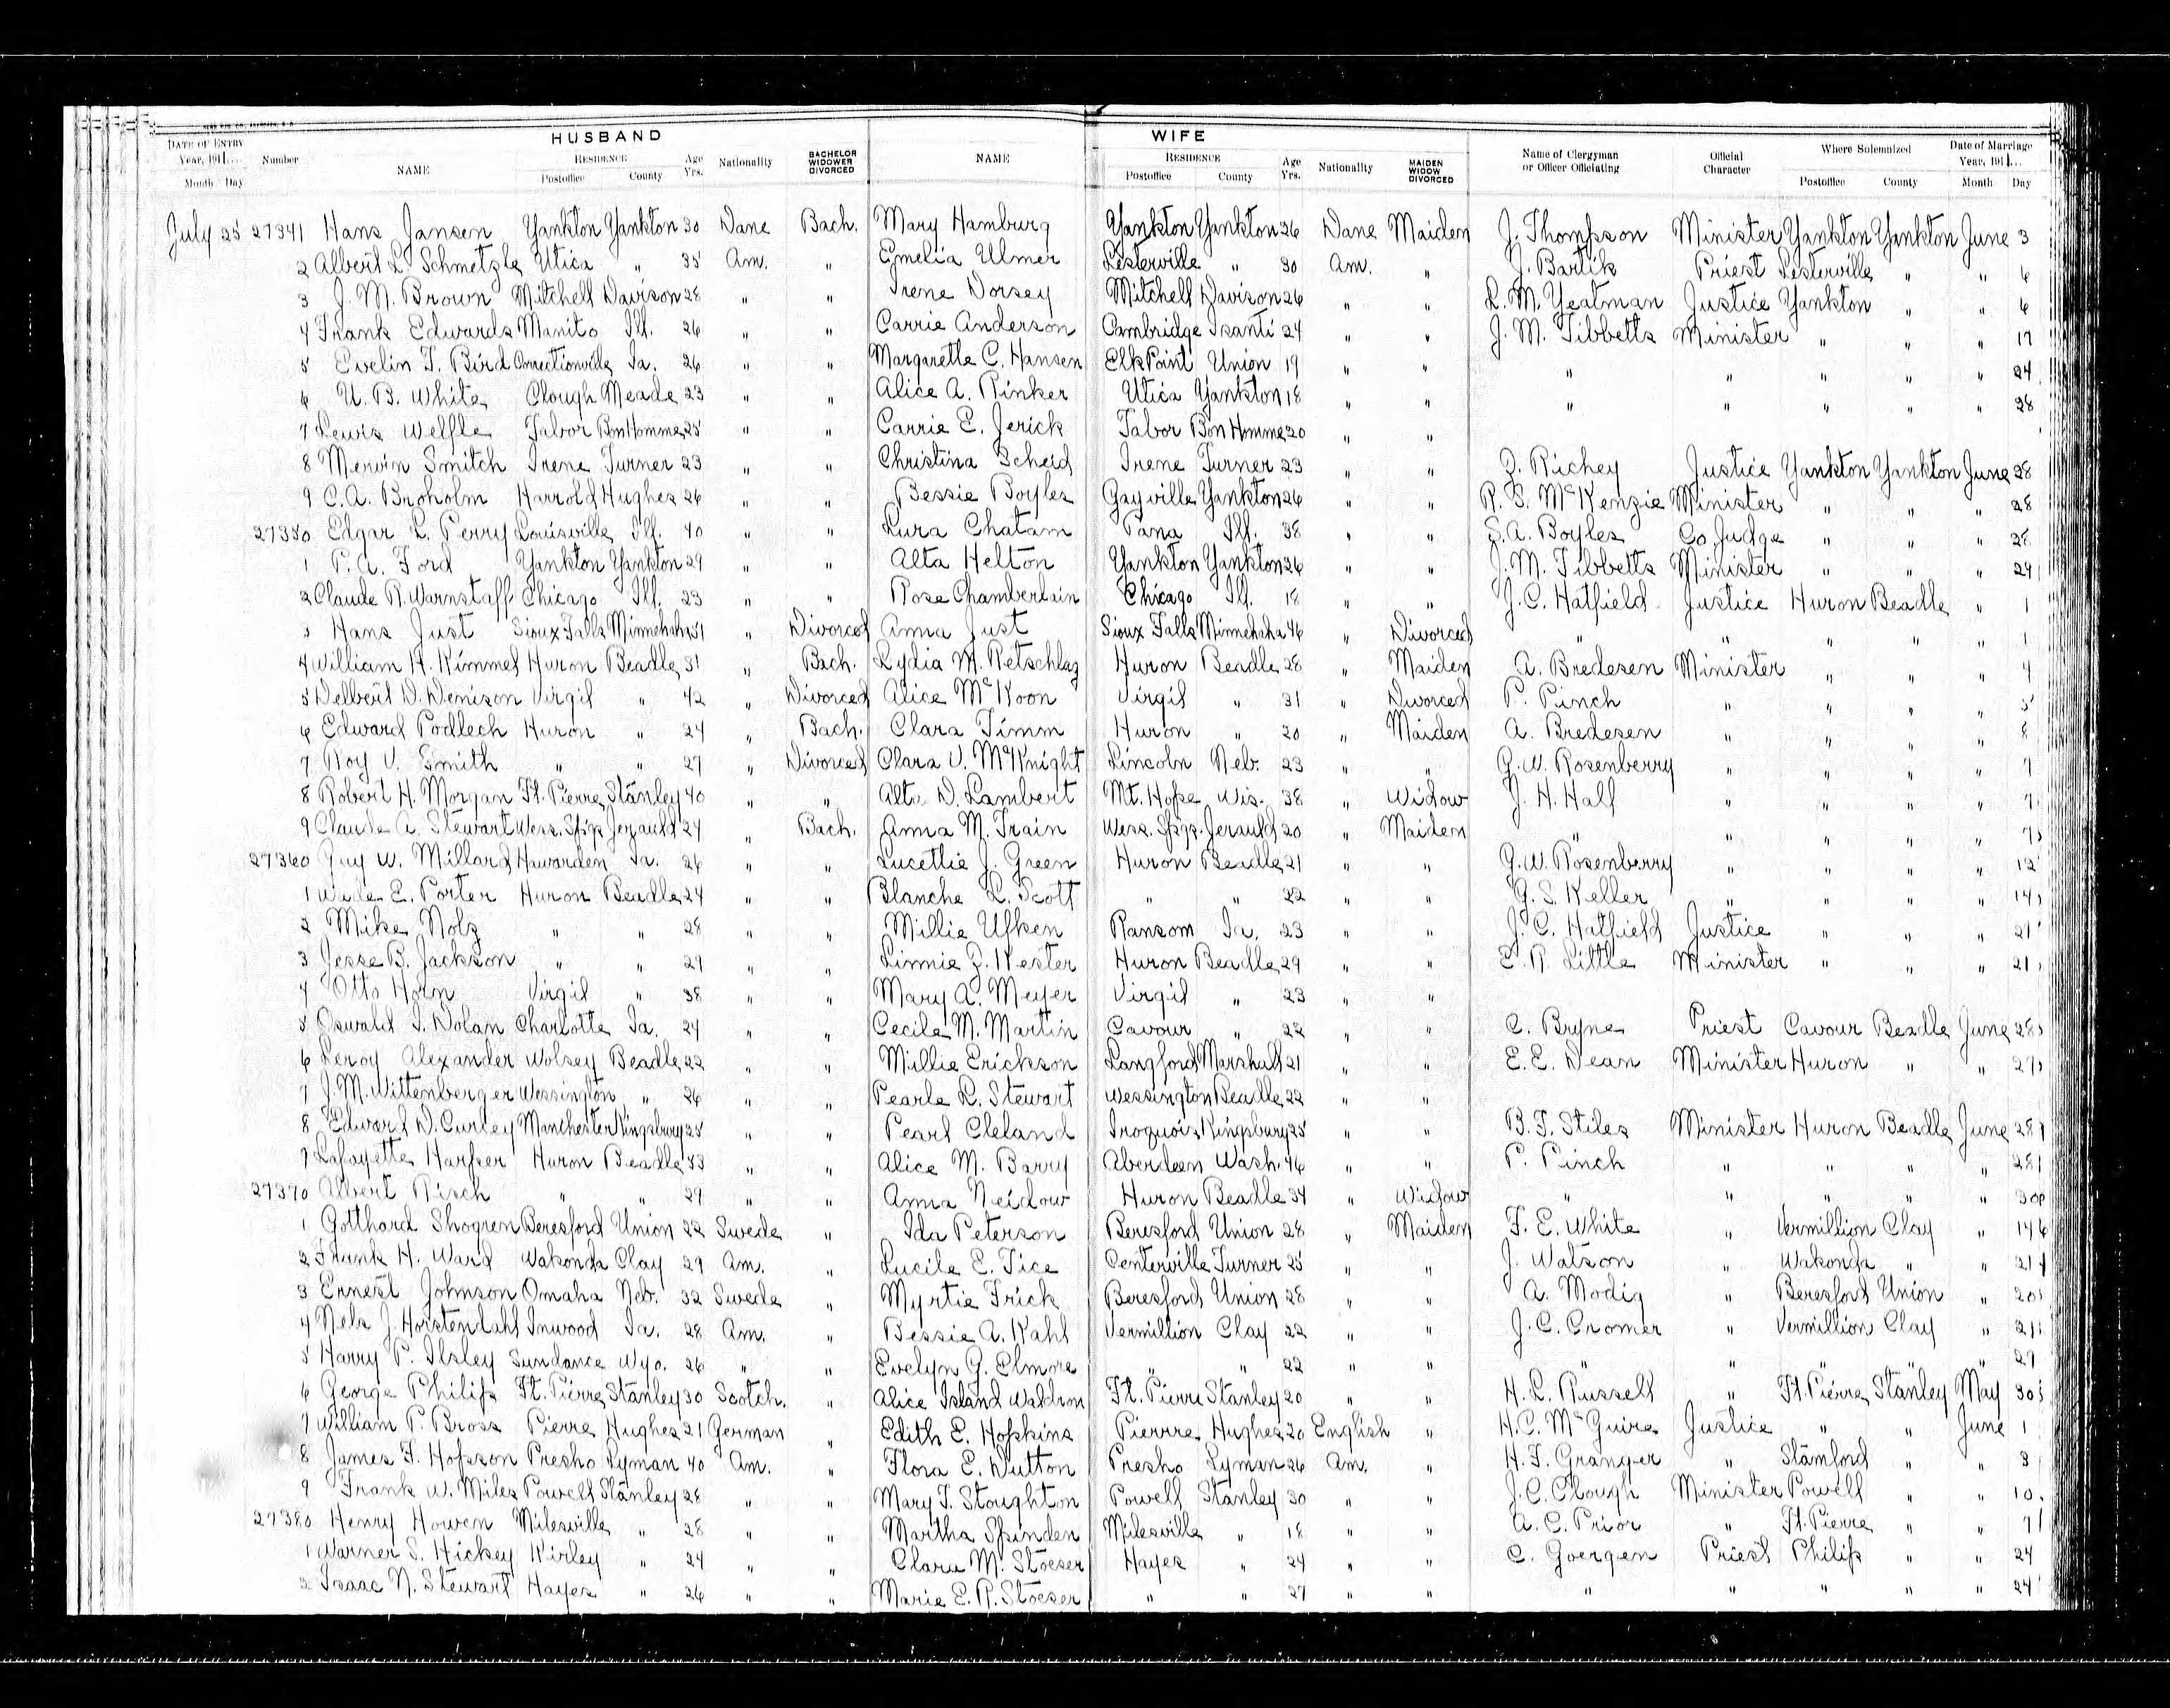 HUSBAND WIFE
DATE OF ENTRY Year, 1911... Number NAME RESIDENCE Age Yrs. Nationality BACHELOR WIDOWER DIVORCED NAME RESIDENCE Age Yrs. Nationality MAIDEN WIDOW DIVORCED Name of Clergyman or Officer Officiating Official Character Where Solemnized Date of Marriage Year, 1911...
Month Day Postoffice County Postoffice County Postoffice County Month Day
July 25 27341 Hans Jansen Yankton Yankton 30 Dane Bach. Mary Hamburg Yankton Yankton 26 Dane Maiden J. Thompson Minister Yankton Yankton June 3
2 Albert L. Schmetzle Utica " 35 Am. " Emelia Ulmer Lesterville " 30 Am. " J. Bartik Priest Lesterville " " 6
3 J. M. Brown Mitchell Davison 28 " " Irene Dorsey Mitchell Davison 26 " " L. M. Yeatman Justice Yankton " " 6
4 Frank Edwards Manito Ill. 26 " " Carrie Anderson Cambridge Isanti 24 " " J. M. Tibbetts Minister " " " 17
5 Evelin T. Bird Correctionville Ia. 26 " " Margarette C. Hansen Elk Point Union 19 " " " " " " " 24
6 U. B. White Clough Meade 23 " " Alice A. Rinker Utica Yankton 18 " " " " " " " 28
7 Lewis Welfle Tabor Bon Homme 25 " " Carrie E. Jerick Tabor Bon Homme 20 " "
8 Mervin Smitch Irene Turner 23 " " Christina Scheid Irene Turner 23 " " Z. Richey Justice Yankton Yankton June 28
9 C. A. Broholm Harrold Hughes 26 " " Bessie Boyles Gayville Yankton 26 " " R. S. McKenzie Minister " " " 28
27350 Edgar L. Perry Louisville Ill. 40 " " Lura Chatam Pana Ill. 38 " " S. A. Boyles Co. Judge " " " 28
1 P. A. Ford Yankton Yankton 29 " " Alta Helton Yankton Yankton 26 " " J. M. Tibbetts Minister " " " 29
2 Claude R. Warnstaff Chicago Ill. 23 " " Rose Chamberlain Chicago Ill. 18 " " J. C. Hatfield Justice Huron Beadle " 1
3 Hans Just Sioux Falls Minnehaha 51 " Divorced Anna Just Sioux Falls Minnehaha 46 " Divorced " " " " " 1
4 William H. Kimmel Huron Beadle 31 " Bach. Lydia M. Retschlag Huron Beadle 28 " Maiden A. Bredesen Minister " " " 4
5 Delbert D. Denison Virgil " 42 " Divorced Alice McKoon Virgil " 31 " Divorced P. Pinch " " " " 5
6 Edward Podlech Huron " 24 " Bach. Clara Timm Huron " 20 " Maiden A. Bredesen " " " " 8
7 Roy V. Smith " " 27 " Divorced Clara V. McKnight Lincoln Neb. 23 " " G. W. Rosenberry " " " " 7
8 Robert H. Morgan Ft. Pierre Stanley 40 " " Alta D. Lambert Mt. Hope Wis. 38 " Widow J. H. Hall " " " " 7
9 Claude A. Stewart Wess. Spgs Jerauld 24 " Bach. Anna M. Train Wess. Spgs. Jerauld 20 " Maiden " " " " " 7
27360 Guy W. Millard Hawarden Ia. 26 " " Lucettie J. Green Huron Beadle 21 " " G. W. Rosenberry " " " " 12
1 Wade E. Porter Huron Beadle 24 " " Blanche L. Scott " " 22 " " G. S. Keller " " " " 14
2 Mike Nolz " " 28 " " Millie Ufken Ransom Ia. 23 " " J. C. Hatfield Justice " " " 21
3 Jesse B. Jackson " " 29 " " Linnie Z. Kester Huron Beadle 29 " " E. R. Little Minister " " " 21
4 Otto Horn Virgil " 38 " " Mary A. Meyer Virgil " 23 " "
5 Oswald I. Dolan Charlotte Ia. 24 " " Cecile M. Martin Cavour " 22 " " C. Bryne Priest Cavour Beadle June 28
6 Leroy Alexander Wolsey Beadle 22 " " Millie Erickson Langford Marshall 21 " " E. E. Dean Minister Huron " " 27
7 J. M. Wittenberger Wessington " 26 " " Pearle L. Stewart Wessington Beadle 22 " "
8 Edward D. Curley Manchester Kingsbury 25 " " Pearl Cleland Iroquois Kingsbury 25 " " B. F. Stiles Minister Huron Beadle June 28
9 Lafayette Harper Huron Beadle 53 " " Alice M. Barry Aberdeen Wash. 46 " " P. Pinch " " " " 28
27370 Albert Risch " " 29 " " Anna Neidow Huron Beadle 34 " Widow " " " " " 30
1 Gotthard Shogren Beresford Union 22 Swede " Ida Peterson Beresford Union 28 " Maiden F. E. White " Vermillion Clay " 14
2 Frank H. Ward Wakonda Clay 29 Am. " Lucile E. Tice Centerville Turner 25 " " J. Watson " Wakonda " " 21
3 Ernest Johnson Omaha Neb. 32 Swede " Myrtie Frick Beresford Union 28 " " A. Modig " Beresford Union " 20
4 Nels J. Horstendahl Inwood Ia. 28 Am. " Bessie A. Kahl Vermillion Clay 22 " " J. C. Cromer " Vermillion Clay " 21
5 Harry P. Ilsley Sundance Wyo. 26 " " Evelyn G. Elmore " " 22 " " " " " " " 29
6 George Philip Ft. Pierre Stanley 30 Scotch. " Alice Island Waldron Ft. Pierre Stanley 20 " " H. L. Russell " Ft. Pierre Stanley May 30
7 William P. Bross Pierre Hughes 21 German " Edith E. Hopkins Pierrre Hughes 20 English " H. C. McGuire Justice " " June 1
8 James F. Hopson Presho Lyman 40 Am. " Flora E. Dutton Presho Lyman 26 Am. " H. F. Granger " Stamford " " 3
9 Frank W. Miles Powell Stanley 28 " " Mary T. Stoughton Powell Stanley 30 " " J. C. Clough Minister Powell " " 10
27380 Henry Howen Milesville " 28 " " Martha Spinden Milesville " 18 " " A. C. Prior " Ft. Pierre " " 7
1 Warner S. Hickey Kirley " 24 " " Clara M. Stoeser Hayes " 24 " " C. Goergen Priest Philip " " 24
2 Isaac N. Stewart Hayes " 26 " " Marie E. R. Stoeser " " 27 " " " " " " " 24